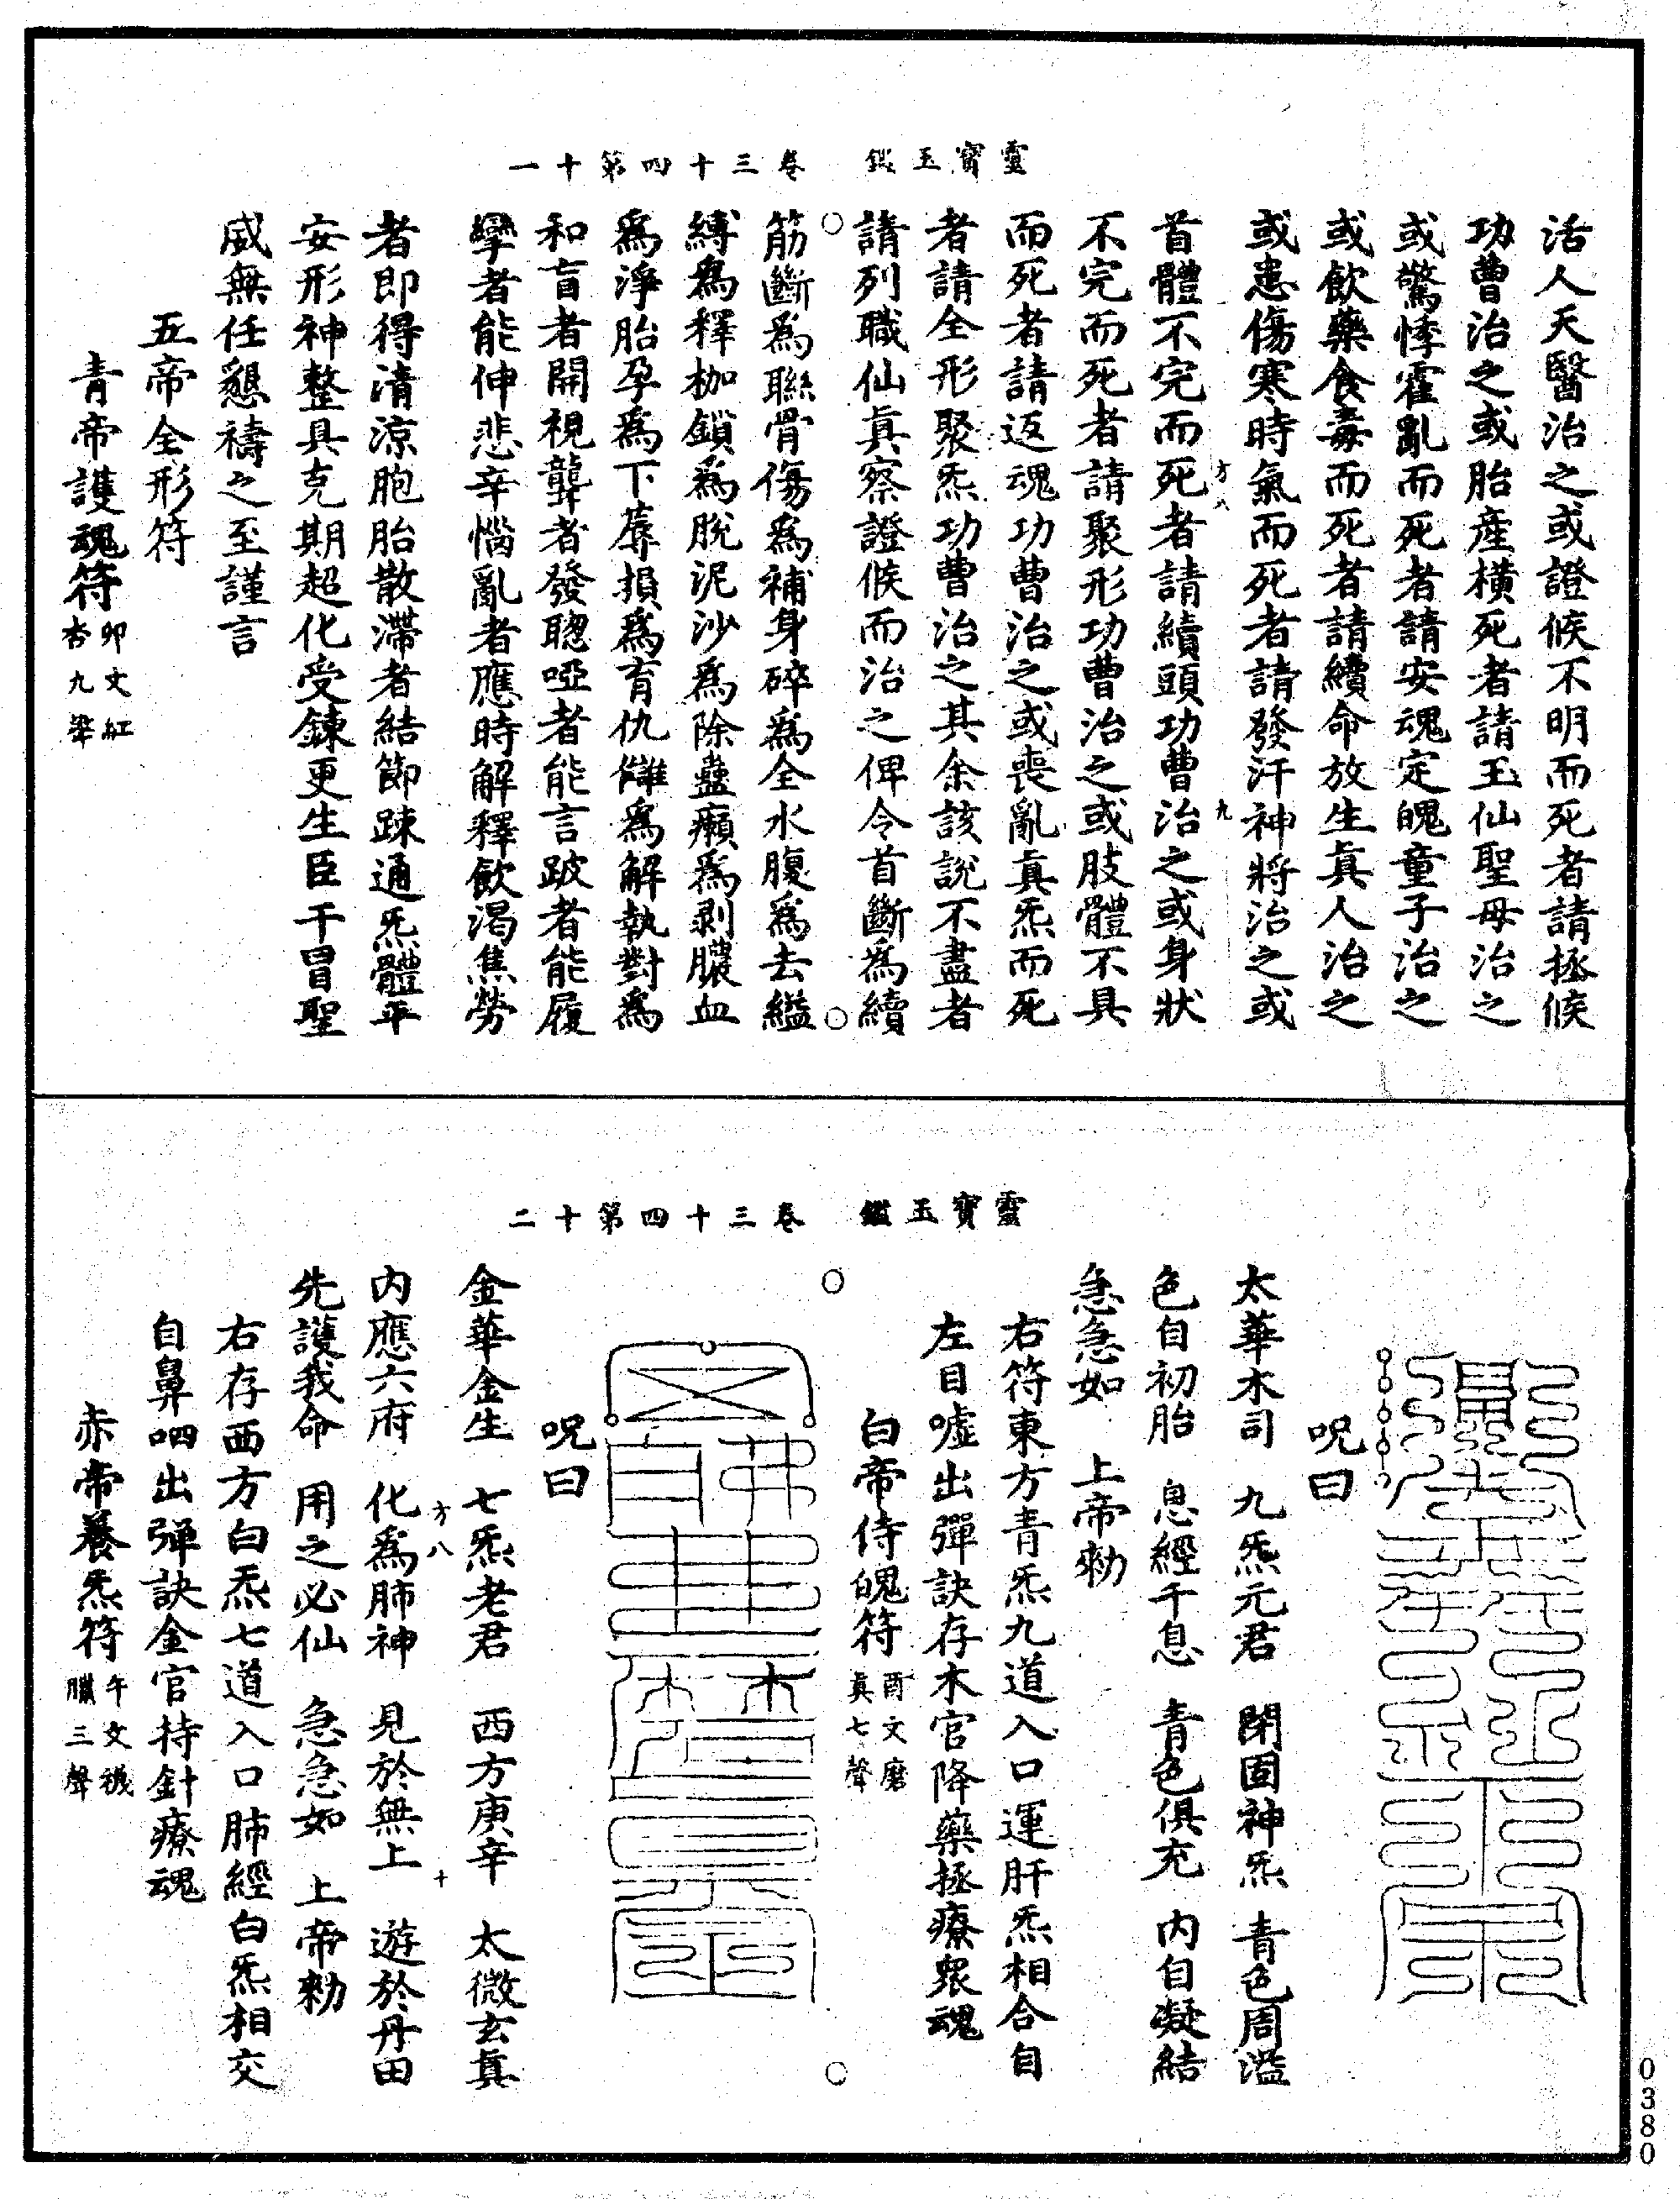 靈寶玉鑑　卷三十四第十一
活人天醫治之或證候不明而死者請拯候
功曹治之或胎產橫死者請玉仙聖母治之
或驚悸霍亂而死者請安魂定魄童子治之
或飲藥食毒而死者請續命放生真人治之
或患傷寒時氣而死者請發汗神將治之或
方八　九
首體不完而死者請續頭功曹治之或身狀
不完而死者請聚形功曹治之或肢體不具
而死者請返魂功曹治之或喪亂真炁而死
者請全形聚炁功曹治之其余該說不盡者
請列職仙真察證候而治之俾令首斷為續
筋斷為聯骨傷為補身碎為全水腹為去縊
縛為釋枷鎖為脫泥沙為除蠱癩為剥膿血
為淨胎孕為下蓐損為育仇讎為解執對為
和盲者開視聾者發聰啞者能言跛者能履
攣者能伸悲辛惱亂者應時解釋飲渴焦勞
者即得清涼胞胎散滯者結節踈通炁體平
安形神整具克期超化受鍊更生臣干冒聖
威無任懇禱之至謹言
五帝全形符
青帝護魂符卯文紅杏九聲
靈寶玉鑑　卷三十四第十二
呪曰
太華木司　九炁元君　閉固神炁　青色周溢
色自初胎　息經千息　青色俱充　内自凝結
急急如　上帝勑
右符東方青炁九道入口運肝炁相合自
左目噓出彈訣存木官降藥拯療衆魂
白帝侍魄符酉文磨真七聲
呪曰
金華金生　七炁老君　西方庚辛　太微玄真
方八　十
内應六府　化為肺神　見於無上　遊於丹田
先護我命　用之必仙　急急如　上帝勑
右存西方白炁七道入口肺經白炁相交
自鼻呬出彈訣金官持針療魂
赤帝養炁符午文襪臘三聲
0380